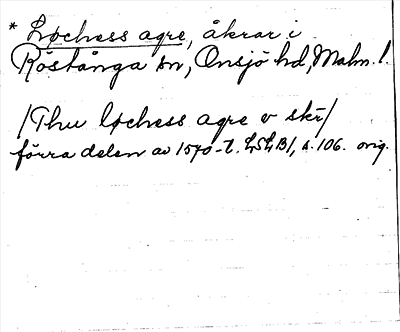 * Løchess agre, åkrar i
Röstånga sn, Onsjö hd, Malm. l.
/Thu løchess agre v skr/
förra delen av 1570-t. LSLB1, s. 106. orig.